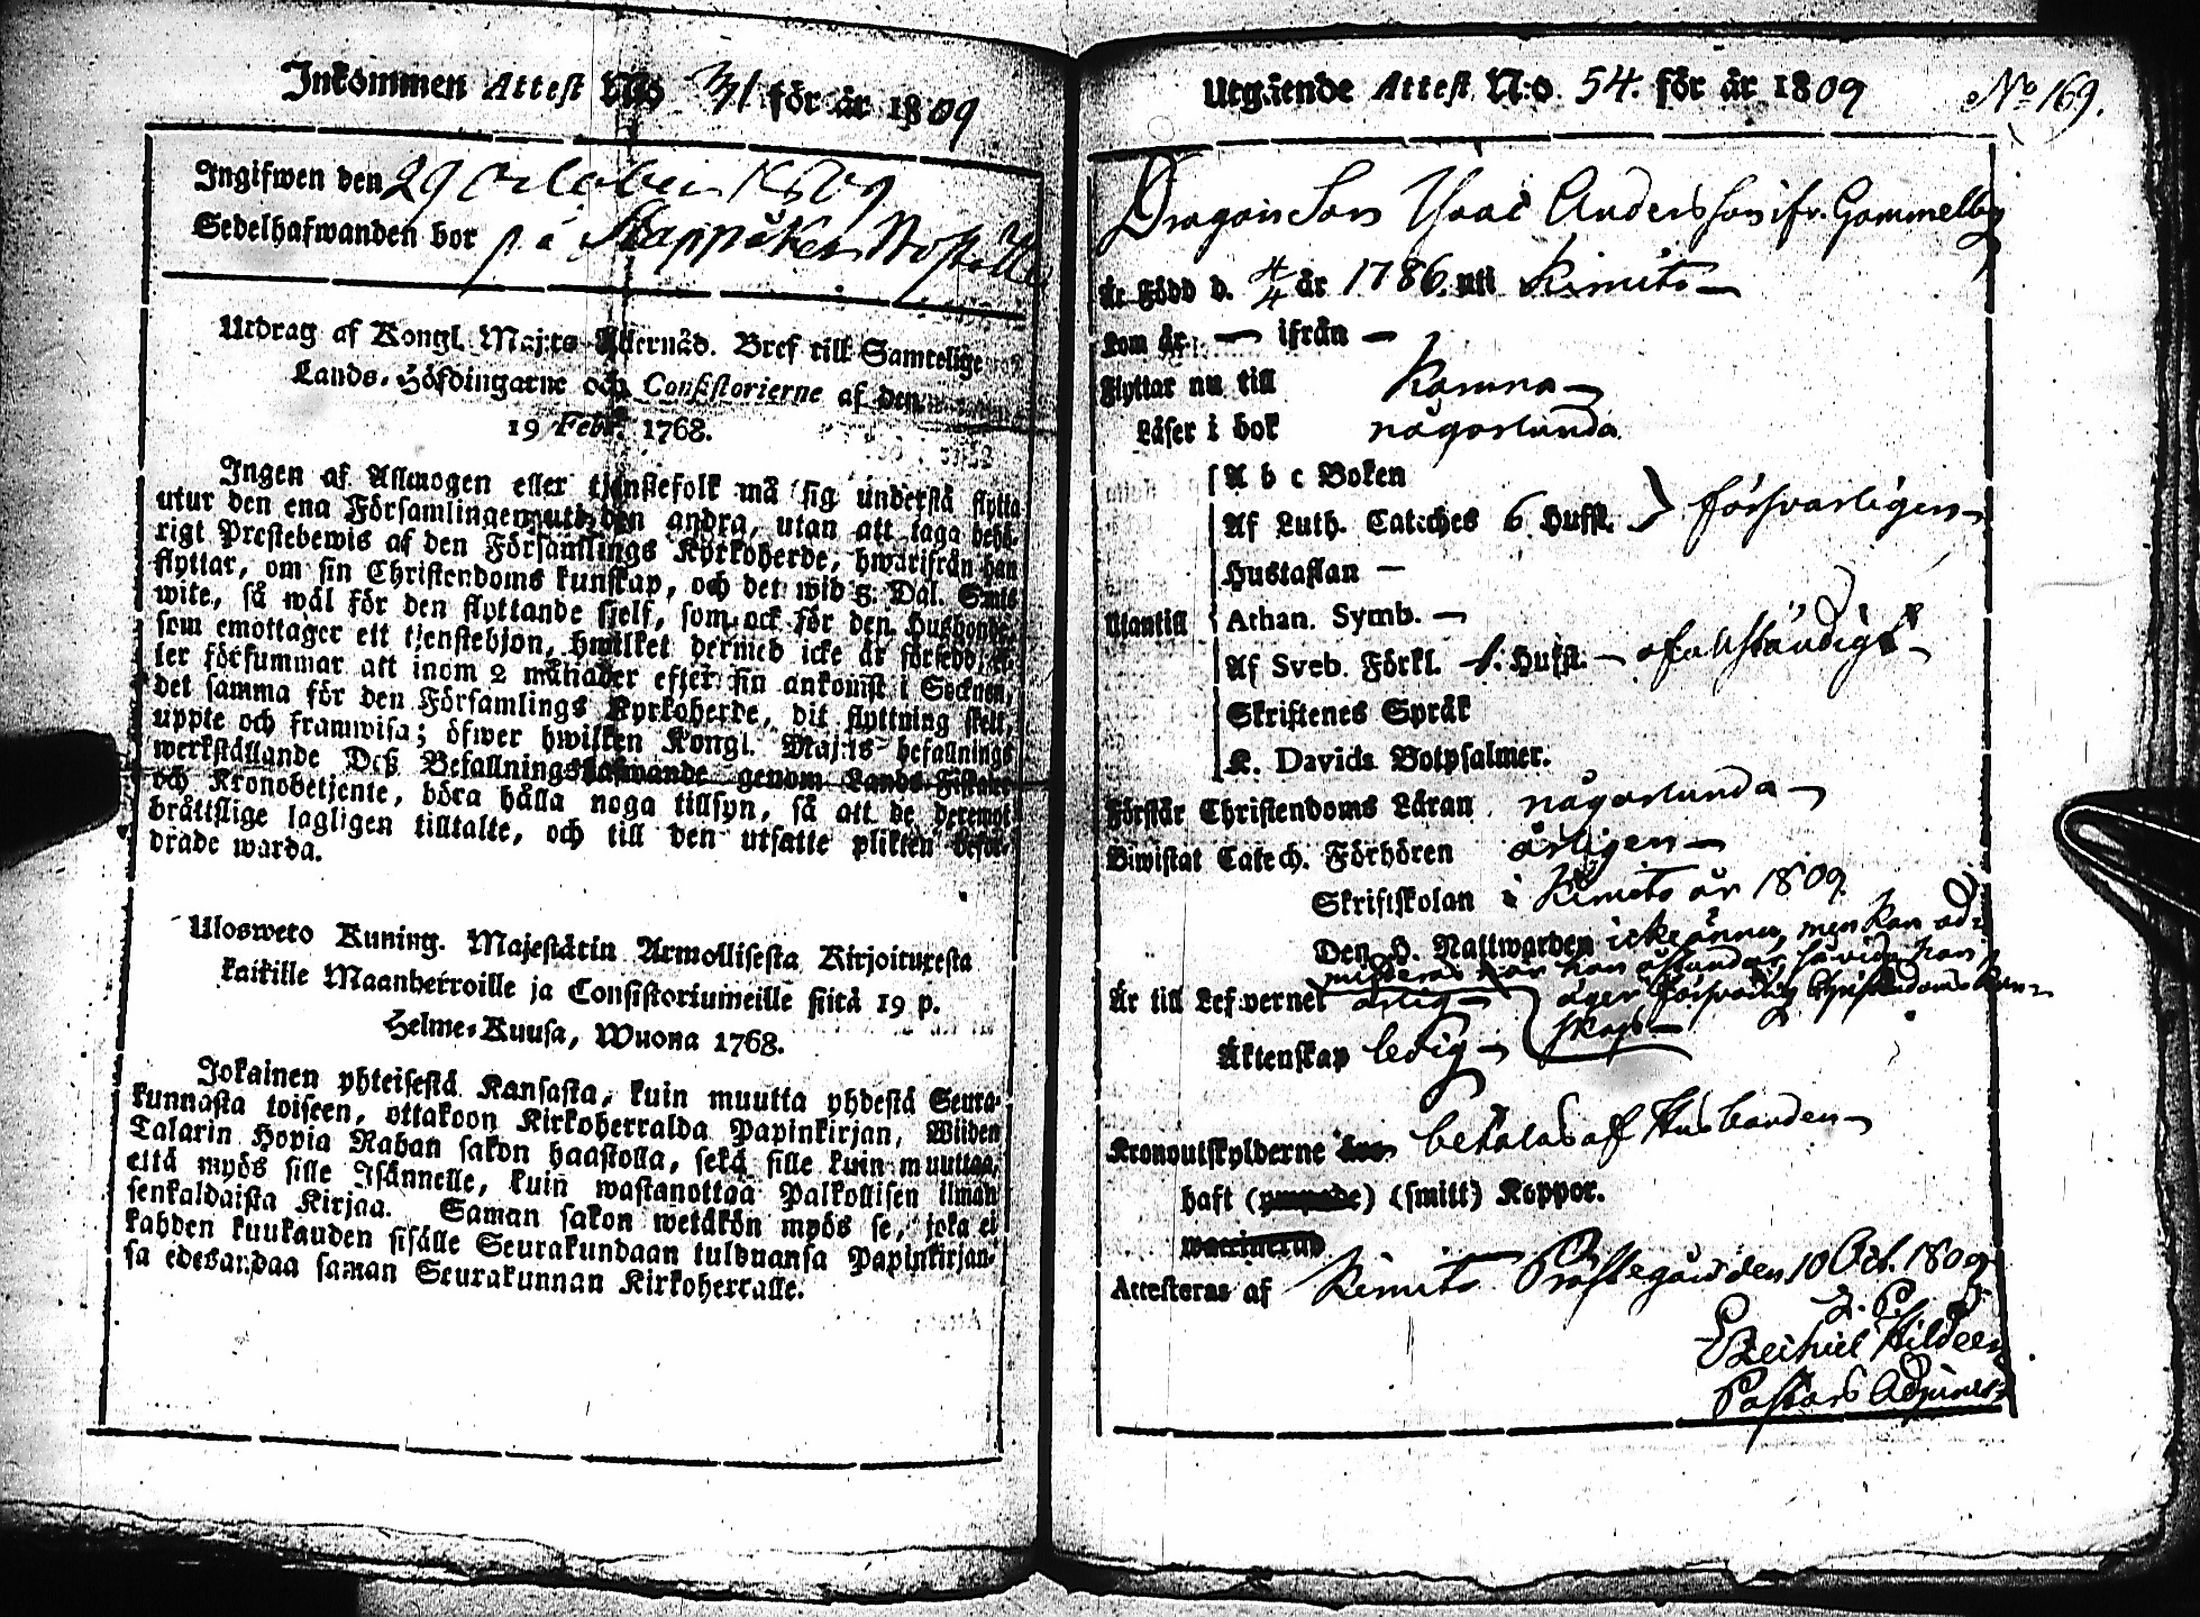 Inkommen Attest N:o 71 för år 1809
Ingifwen den 29 October 1809
Sedelhafwanden bor på
Utdrag af Kongl. Maj:ts Allernåd. Bref till Samtelige
Lands-Höfdingarne och Consistorierne af den
19 Febr. 1768.
Ingen af Allmogen eller tjenstefolk må sig understå flytta
utur den ena Församlingen uti den andra, utan att taga behö-
rigt Prestebewis af den Församlings Kyrkoherde, hwarifrån han
flyttar, om sin Christendoms kunskap, och det wid 5. Dal. Smts
wite, så wäl för den flyttande sjelf, som ock för den Husbonde,
som emottager ett tjenstehjon, hwilket dermed icke är försedd, el-
ler försummar att inom 2 månader efter sin ankomst i Socknen,
det samma för den Församlings Kyrkoherde, dit flyttning skett,
uppte och framwisa; öfwer hwilken Kongl. Maj:ts befallnings
werkställande Deß Befallningshafwande genom Lands-Fiskaler
och Kronobetjente, böra hålla noga tillsyn, så att de deremot
bråttslige lagligen tilltalte, och till den utsatte plikten befor-
drade warda.
Ulosweto Kuning. Majestätin Armollisesta Kirjoituxesta
kaikille Maanherroille ja Consistoriumeille siitä 19 p.
Helme-Kuusa, Wuona 1768.
Jokainen yhteisestä Kansasta, kuin muutta yhdestä Seura-
kunnasta toiseen, ottakoon Kirkoherralda Papinkirjan, Wiiden
Talarin Hopia Rahan sakon haastolla, sekä sille kuin muuttaa,
että myös sille Isännelle, kuin wastanottaa Palkollisen ilman
senkaldaista Kirjaa. Saman sakon wetäkön myös se, joka ei
kahden kuukauden sisälle Seurakundaan tulduansa Papinkirjan-
sa edesandaa saman Seurakunnan Kirkoherralle.
Utgående Attest N:o 54. för år 1809 No 169.
Dragon Son Isaac Andersson ifr. Gammelby
Är Född d. 4/4 år 1786. uti Kimito —
Kom år — ifrån —
Flyttar nu till Karuna —
Läser i bok någorlunda
A b c Boken
Af Luth. Cateches 6 Hufst. } försvarligen —
Hustaflan —
Utantill Athan. Symb. —
Af Sveb. Förkl. 1. Hufst. — ofullständigt —
Skriftenes Språk
K. Davids Botpsalmer.
Förstår Christendoms Läran någorlunda —
Biwistat Catech. Förhören årligen —
Skriftskolan i Kimito år 1809.
Den H. Nattwarden icke ännu, men kan ad-
mitteras när han åstundar, så vida han
Är till Lefwernet ärlig — äger försvarlig Christendoms kun-
skap. —
Äktenskap ledig —
Kronoutskylderne betalas af Husbonden —
haft () (smitt) Koppor.
Attesteras af Kimito Prästegård den 10 Oct. 1809
Ezechiel Hildeen
Pastors Adjunct